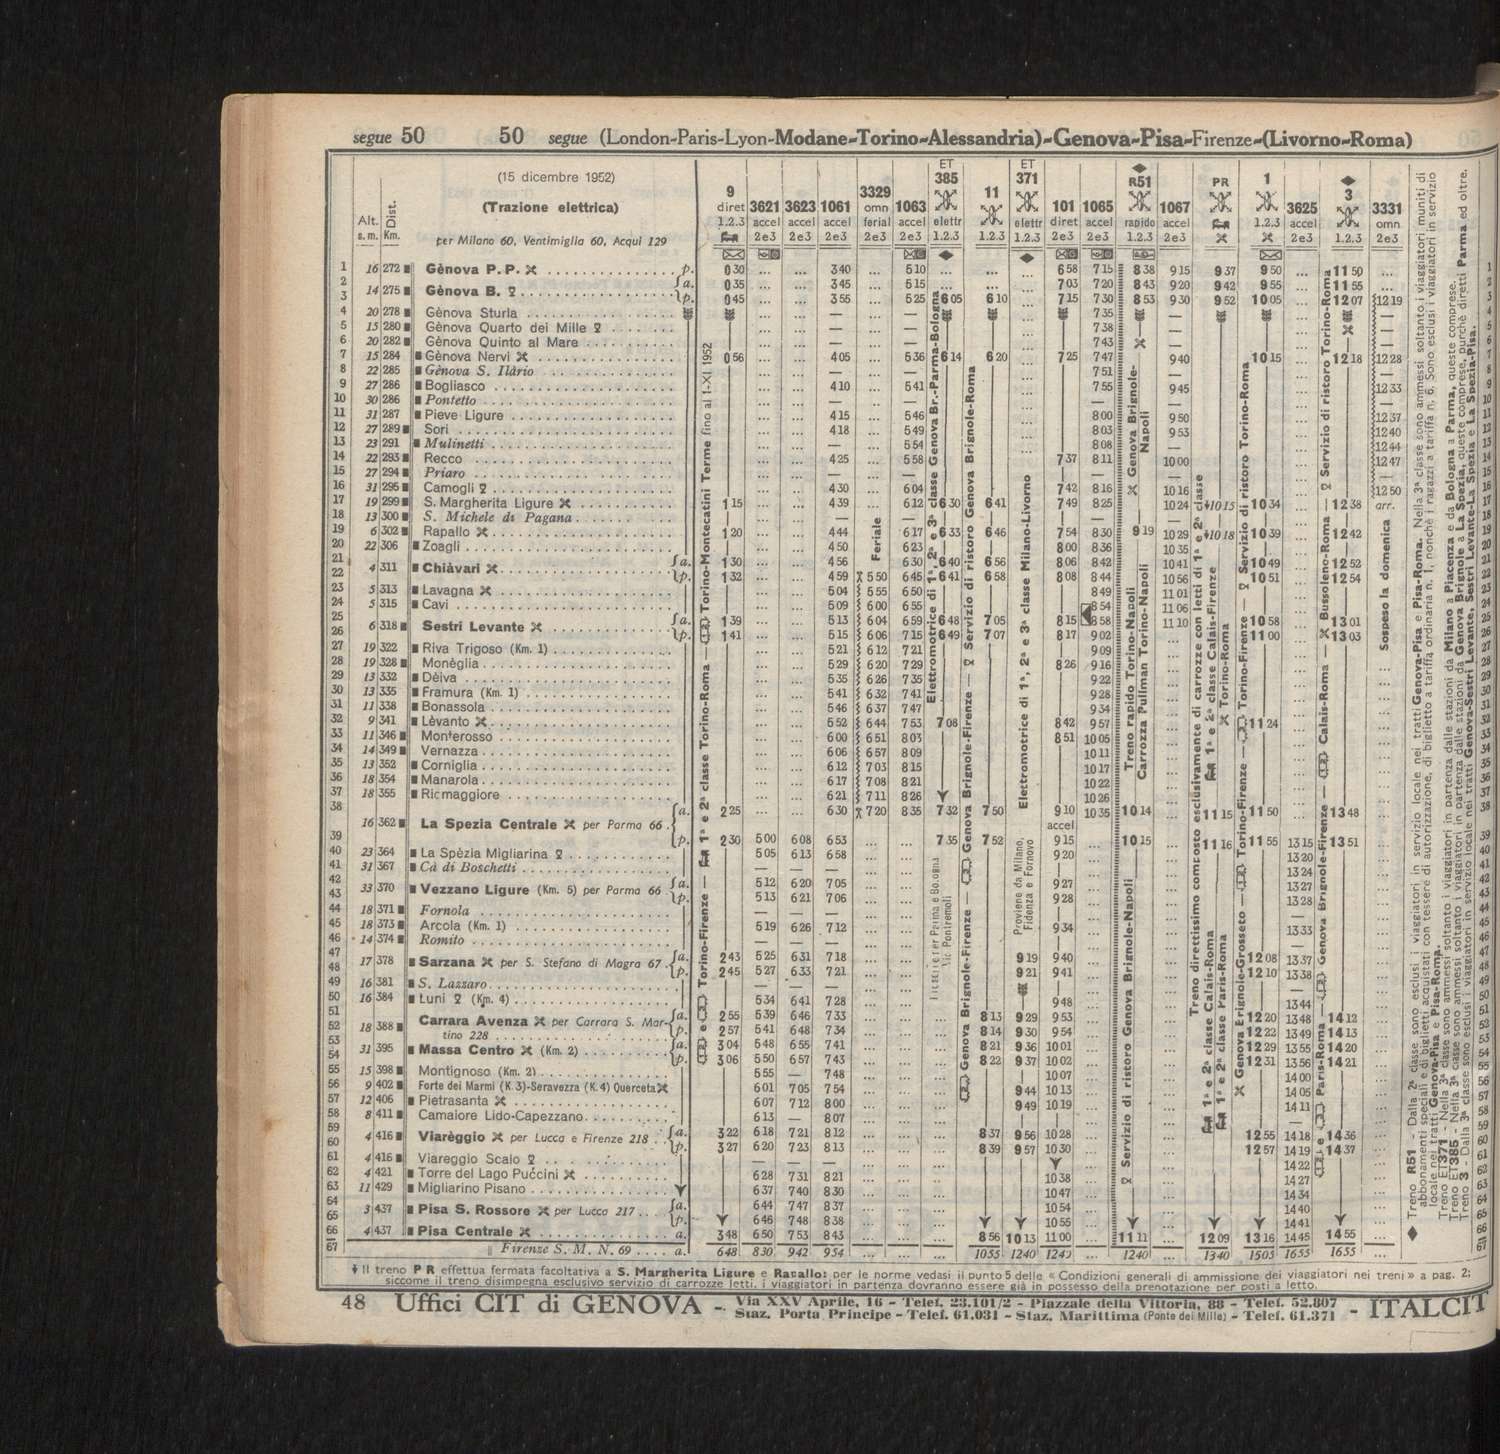 segue 50 50 segue (London-Paris-Lyon-Modane-Torino-Alessandria)-Genova-Pisa-Firenze-(Livorno-Roma)
(15 dicembre 1952)
(Trazione elettrica)
per Milano 60, Ventimiglia 60, Acqui 129
Alt. s. m. Dist. Km.
9 diret 1.2.3
3621 accel 2e3
3623 accel 2e3
1061 accel 2e3
3329 omn ferial 2e3
1063 accel 2e3
ET 385 elettr 1.2.3
11 1.2.3
ET 371 elettr 1.2.3
101 diret 2e3
1065 accel 2e3
R51 rapido 1.2.3
1067 accel 2e3
PR
1 1.2.3
3625 accel 2e3
3 1.2.3
3331 omn 2e3
1 16 272 Gènova P. P. p. 0 30 ... ... 3 40 ... 5 10 ... ... ... 6 58 7 15 8 38 9 15 9 37 9 50 ... 11 50 ...
2 14 275 Gènova B. a. 0 35 ... ... 3 45 ... 5 15 7 03 7 20 8 43 9 20 9 42 9 55 ... 11 55 ...
3 p. 0 45 ... ... 3 55 ... 5 25 6 05 6 10 7 15 7 30 8 53 9 30 9 52 10 05 ... 12 07 12 19
4 20 278 Gènova Sturla 7 35
5 15 280 Gènova Quarto dei Mille 7 38
6 20 282 Gènova Quinto al Mare 7 43
7 15 284 Gènova Nervi 0 56 ... ... 4 05 ... 5 36 6 14 6 20 7 25 7 47 9 40 10 15 ... 12 18 12 28
8 22 285 Gènova S. Ilàrio 7 51
9 27 286 Bogliasco 4 10 ... 5 41 7 55 9 45 12 33
10 30 286 Pontetto
11 31 287 Pieve Ligure 4 15 ... 5 46 8 00 9 50 12 37
12 27 289 Sori 4 18 ... 5 49 8 03 9 53 12 40
13 23 291 Mulinetti — 5 54 8 08 12 44
14 22 293 Recco 4 25 ... 5 58 7 37 8 11 10 00 12 47
15 27 294 Priaro
16 31 295 Camogli 4 30 6 04 7 42 8 16 10 16 12 50
17 19 299 S. Margherita Ligure 1 15 4 39 6 12 6 30 6 41 7 49 8 25 10 24 10 15 10 34 12 38 arr.
18 13 300 S. Michele di Pagana
19 6 302 Rapallo 1 20 4 44 6 17 6 33 6 46 7 54 8 30 9 19 10 29 10 18 10 39 12 42
20 22 306 Zoagli 4 50 6 23 8 00 8 36 10 35
21 4 311 Chiàvari a. 1 30 4 56 6 30 6 40 6 56 8 06 8 42 10 41 10 49 12 52
22 p. 1 32 4 59 5 50 6 45 6 41 6 58 8 08 8 44 10 56 10 51 12 54
23 5 313 Lavagna 5 04 5 55 6 50 8 49 11 01
24 5 315 Cavi 5 09 6 00 6 55 8 54 11 06
25 6 318 Sestri Levante a. 1 39 5 13 6 04 6 59 6 48 7 05 8 15 8 58 11 10 10 58 13 01
26 p. 1 41 5 15 6 06 7 15 6 49 7 07 8 17 9 02 11 00 13 03
27 19 322 Riva Trigoso (Km. 1) 5 21 6 12 7 21 9 09
28 19 328 Monèglia 5 29 6 20 7 29 8 26 9 16
29 13 332 Dèiva 5 35 6 26 7 35 9 22
30 13 335 Framura (Km. 1) 5 41 6 32 7 41 9 28
31 11 338 Bonassola 5 46 6 37 7 47 9 34
32 9 341 Lèvanto 5 52 6 44 7 53 7 08 8 42 9 57 11 24
33 11 346 Monterosso 6 00 6 51 8 03 8 51 10 05
34 14 349 Vernazza 6 06 6 57 8 09 10 11
35 13 352 Corniglia 6 12 7 03 8 15 10 17
36 18 354 Manarola 6 17 7 08 8 21 10 22
37 18 355 Riomaggiore 6 21 7 11 8 26 10 26
38 16 362 La Spezia Centrale per Parma 66 a. 2 25 6 30 7 20 8 35 7 32 7 50 9 10 10 35 10 14 11 15 11 50 13 48
accel
39 p. 2 30 5 00 6 08 6 53 ... ... 7 35 7 52 9 15 ... 10 15 11 16 11 55 13 15 13 51
40 23 364 La Spèzia Migliarina 5 05 6 13 6 58 9 20 13 20
41 31 367 Cà di Boschetti 13 24
42 33 370 Vezzano Ligure (Km. 5) per Parma 66 a. 5 12 6 20 7 05 9 27 13 27
43 p. 5 13 6 21 7 06 9 28 13 28
44 18 371 Fornola
45 18 373 Arcola (Km. 1) 5 19 6 26 7 12 9 34 13 33
46 14 374 Romito
47 17 378 Sarzana per S. Stefano di Magra 67 a. 2 43 5 25 6 31 7 18 9 19 9 40 12 08 13 37
48 p. 2 45 5 27 6 33 7 21 9 21 9 41 12 10 13 38
49 16 381 S. Lazzaro
50 16 384 Luni (Km. 4) 5 34 6 41 7 28 9 48 13 44
51 18 388 Carrara Avenza per Carrara S. Mar- a. 2 55 5 39 6 46 7 33 8 13 9 29 9 53 12 20 13 48 14 12
52 tino 228 p. 2 57 5 41 6 48 7 34 8 14 9 30 9 54 12 22 13 49 14 13
53 31 395 Massa Centro (Km. 2) a. 3 04 5 48 6 55 7 41 8 21 9 36 10 01 12 29 13 55 14 20
54 p. 3 06 5 50 6 57 7 43 8 22 9 37 10 02 12 31 13 56 14 21
55 15 398 Montignoso (Km. 2) 5 55 — 7 48 10 07 14 00
56 9 402 Forte dei Marmi (K. 3)-Seravezza (K. 4) Querceta 6 01 7 05 7 54 9 44 10 13 14 05
57 12 406 Pietrasanta 6 07 7 12 8 00 9 49 10 19 14 11
58 8 411 Camaiore Lido-Capezzano 6 13 — 8 07
59 4 416 Viarèggio per Lucca e Firenze 218 a. 3 22 6 18 7 21 8 12 8 37 9 56 10 28 12 55 14 18 14 36
60 p. 3 27 6 20 7 23 8 13 8 39 9 57 10 30 12 57 14 19 14 37
61 4 416 Viareggio Scalo 14 22
62 4 421 Torre del Lago Puccini 6 28 7 31 8 21 10 38 14 27
63 11 429 Migliarino Pisano 6 37 7 40 8 30 10 47 14 34
64 3 437 Pisa S. Rossore per Lucca 217 a. 6 44 7 47 8 37 10 54 14 40
65 p. 6 46 7 48 8 38 10 55 14 41
66 4 437 Pisa Centrale a. 3 48 6 50 7 53 8 43 8 56 10 13 11 00 11 11 12 09 13 16 14 45 14 55
67 Firenze S. M. N. 69 a. 6 48 8 30 9 42 9 54 ... ... ... 10 55 12 40 12 45 ... 12 40 ... 13 40 15 05 16 55 16 55 ...
1ª e 2ª classe Torino-Roma — Torino-Montecatini Terme fino al 1-XI 1952
Torino-Firenze
Feriale
Elettromotrice di 1ª, 2ª e 3ª classe Genova Br.-Parma-Bologna
Servizio di ristoro Genova Brignole-Roma
Genova Brignole-Firenze
Elettromotrice di 1ª, 2ª e 3ª classe Milano-Livorno
Proviene da Milano, Fidenza e Fornovo
Treno rapido Torino-Napoli
Carrozza Pullman Torino-Napoli
Genova Brignole-Napoli
Servizio di ristoro Genova Brignole-Napoli
Treno direttissimo composto esclusivamente di carrozze con letti di 1ª e 2ª classe
1ª e 2ª classe Calais-Roma
1ª e 2ª classe Paris-Roma
1ª e 2ª classe Calais-Firenze
Torino-Roma
Servizio di ristoro Torino-Roma
Torino-Firenze
Servizio di ristoro Torino-Roma
Bussoleno-Roma
Calais-Roma
Genova Brignole-Firenze
Paris-Roma
Sospeso la domenica
Treno R51 - Dalla 2ª classe sono esclusi i viaggiatori in servizio locale nei tratti Genova-Pisa e Pisa-Roma. Nella 3ª classe sono ammessi soltanto i viaggiatori muniti di
abbonamenti speciali e di biglietti acquistati con tessere di autorizzazione, di biglietto a tariffa ordinaria n. 1, nonchè i ragazzi a tariffa n. 6. Sono esclusi i viaggiatori in servizio
locale nei tratti Genova-Pisa e Pisa-Roma.
Treno ET371 - Nella 3ª classe sono ammessi soltanto i viaggiatori in partenza dalle stazioni da Milano a Piacenza e da Bologna a Parma, queste comprese.
Treno ET385 - Nella 3ª classe sono ammessi soltanto i viaggiatori in partenza dalle stazioni da Genova Brignole a La Spezia, queste comprese, purchè diretti Parma ed oltre.
Treno 3 - Dalla 3ª classe sono esclusi i viaggiatori nei tratti Genova-Sestri Levante, Sestri Levante-La Spezia e La Spezia-Pisa.
Il treno PR effettua fermata facoltativa a S. Margherita Ligure e Rapallo: per le norme vedasi il punto 5 delle « Condizioni generali di ammissione dei viaggiatori nei treni » a pag. 2;
siccome il treno disimpegna esclusivo servizio di carrozze letti, i viaggiatori in partenza dovranno essere già in possesso della prenotazione per posti a letto.
48 Uffici CIT di GENOVA - Via XXV Aprile, 16 - Telef. 23.101/2 - Piazzale della Vittoria, 88 - Telef. 52.807
Staz. Porta Principe - Telef. 61.031 - Staz. Marittima (Ponte dei Mille) - Telef. 61.371 - ITALCIT